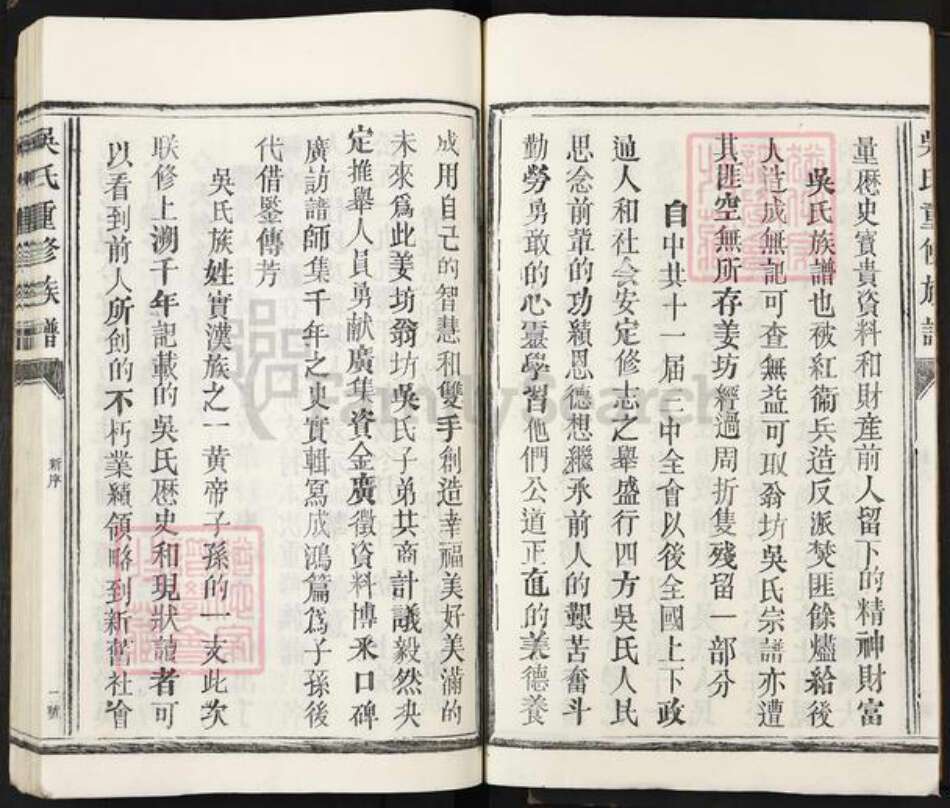 量歷史寶貴資料和財產前人留下的精神財富
吳氏族譜也被紅衛兵造反派焚匪餘燼給後
人造成無記可查無益可取翁坊吳氏宗譜亦遭
其匪空無所存姜坊經過周折隻殘留一部分
自中共十一届三中全會以後全國上下政
通人和社会安定修志之舉盛行四方吳氏人民
思念前輩的功績恩德想繼承前人的艱苦奮斗
勤勞勇敢的心靈學習他們公道正直的美德養
成用自己的智慧和雙手創造幸福美好美滿的
未來爲此姜坊翁坊吳氏子弟共商計議毅然决
定推舉人員勇献廣集資金廣徵資料博釆口碑
廣訪譜師集千年之史實輯寫成鴻篇爲子孫後
代借鑒傳芳
吳氏族姓實漢族之一黄帝子孫的一支此次
联修上溯千年記載的吳氏歷史和現狀讀者可
以看到前人所創的不朽業績領略到新舊社會
吳氏重修族譜
新序
一號
FamilySearch